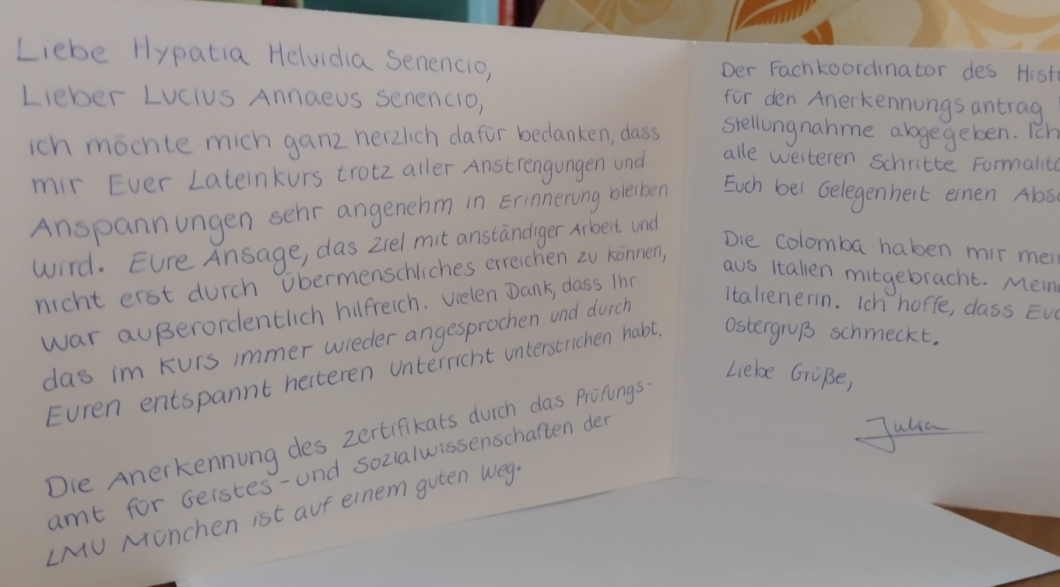 Liebe Hypatia Helvidia Senencio,
Lieber Lucius Annaeus Senencio,
ich möchte mich ganz herzlich dafür bedanken, dass
mir Euer Lateinkurs trotz aller Anstrengungen und
Anspannungen sehr angenehm in Erinnerung bleiben
wird. Eure Ansage, das Ziel mit anständiger Arbeit und
nicht erst durch Übermenschliches erreichen zu können,
war außerordentlich hilfreich. Vielen Dank, dass Ihr
das im Kurs immer wieder angesprochen und durch
Euren entspannt heiteren Unterricht unterstrichen habt.
Die Anerkennung des Zertifikats durch das Prüfungs-
amt für Geistes- und Sozialwissenschaften der
LMU München ist auf einem guten Weg.
Der Fachkoordinator des
für den Anerkennungsantrag
Stellungnahme abgegeben. Ich
alle weiteren Schritte
Euch bei Gelegenheit einen
Die Colomba haben mir
aus Italien mitgebracht.
Italienerin. Ich hoffe, dass
Ostergruß schmeckt.
Liebe Grüße,
Julia